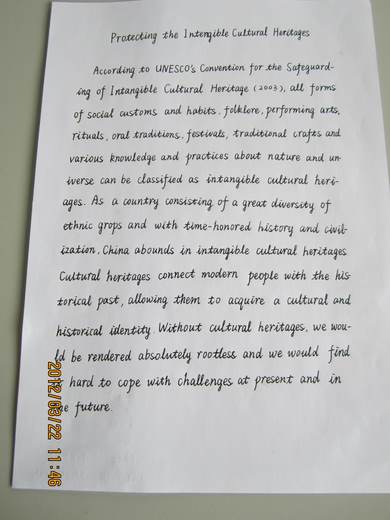 Protecting the Intengible Cultural Heritages
According to UNESCO's Convention for the Safeguard-
ing of Intangible Cultural Heritage (2003), all forms
of social customs and habits, folklore, performing arts,
rituals, oral traditions, festivals, traditional crafts and
various knowledge and practices about nature and un-
iverse can be classified as intangible cultural heri-
ages. As a country consisting of a great diversity of
ethnic grops and with time-honored history and civil-
ization, China abounds in intangible cultural heritages
Cultural heritages connect modern people with the his-
torical past, allowing them to acquire a cultural and
historical identity. Without cultural heritages, we wou-
ld be rendered absolutely rootless and we would find
hard to cope with challenges at present and in
he future.
2012/03/22 11:46